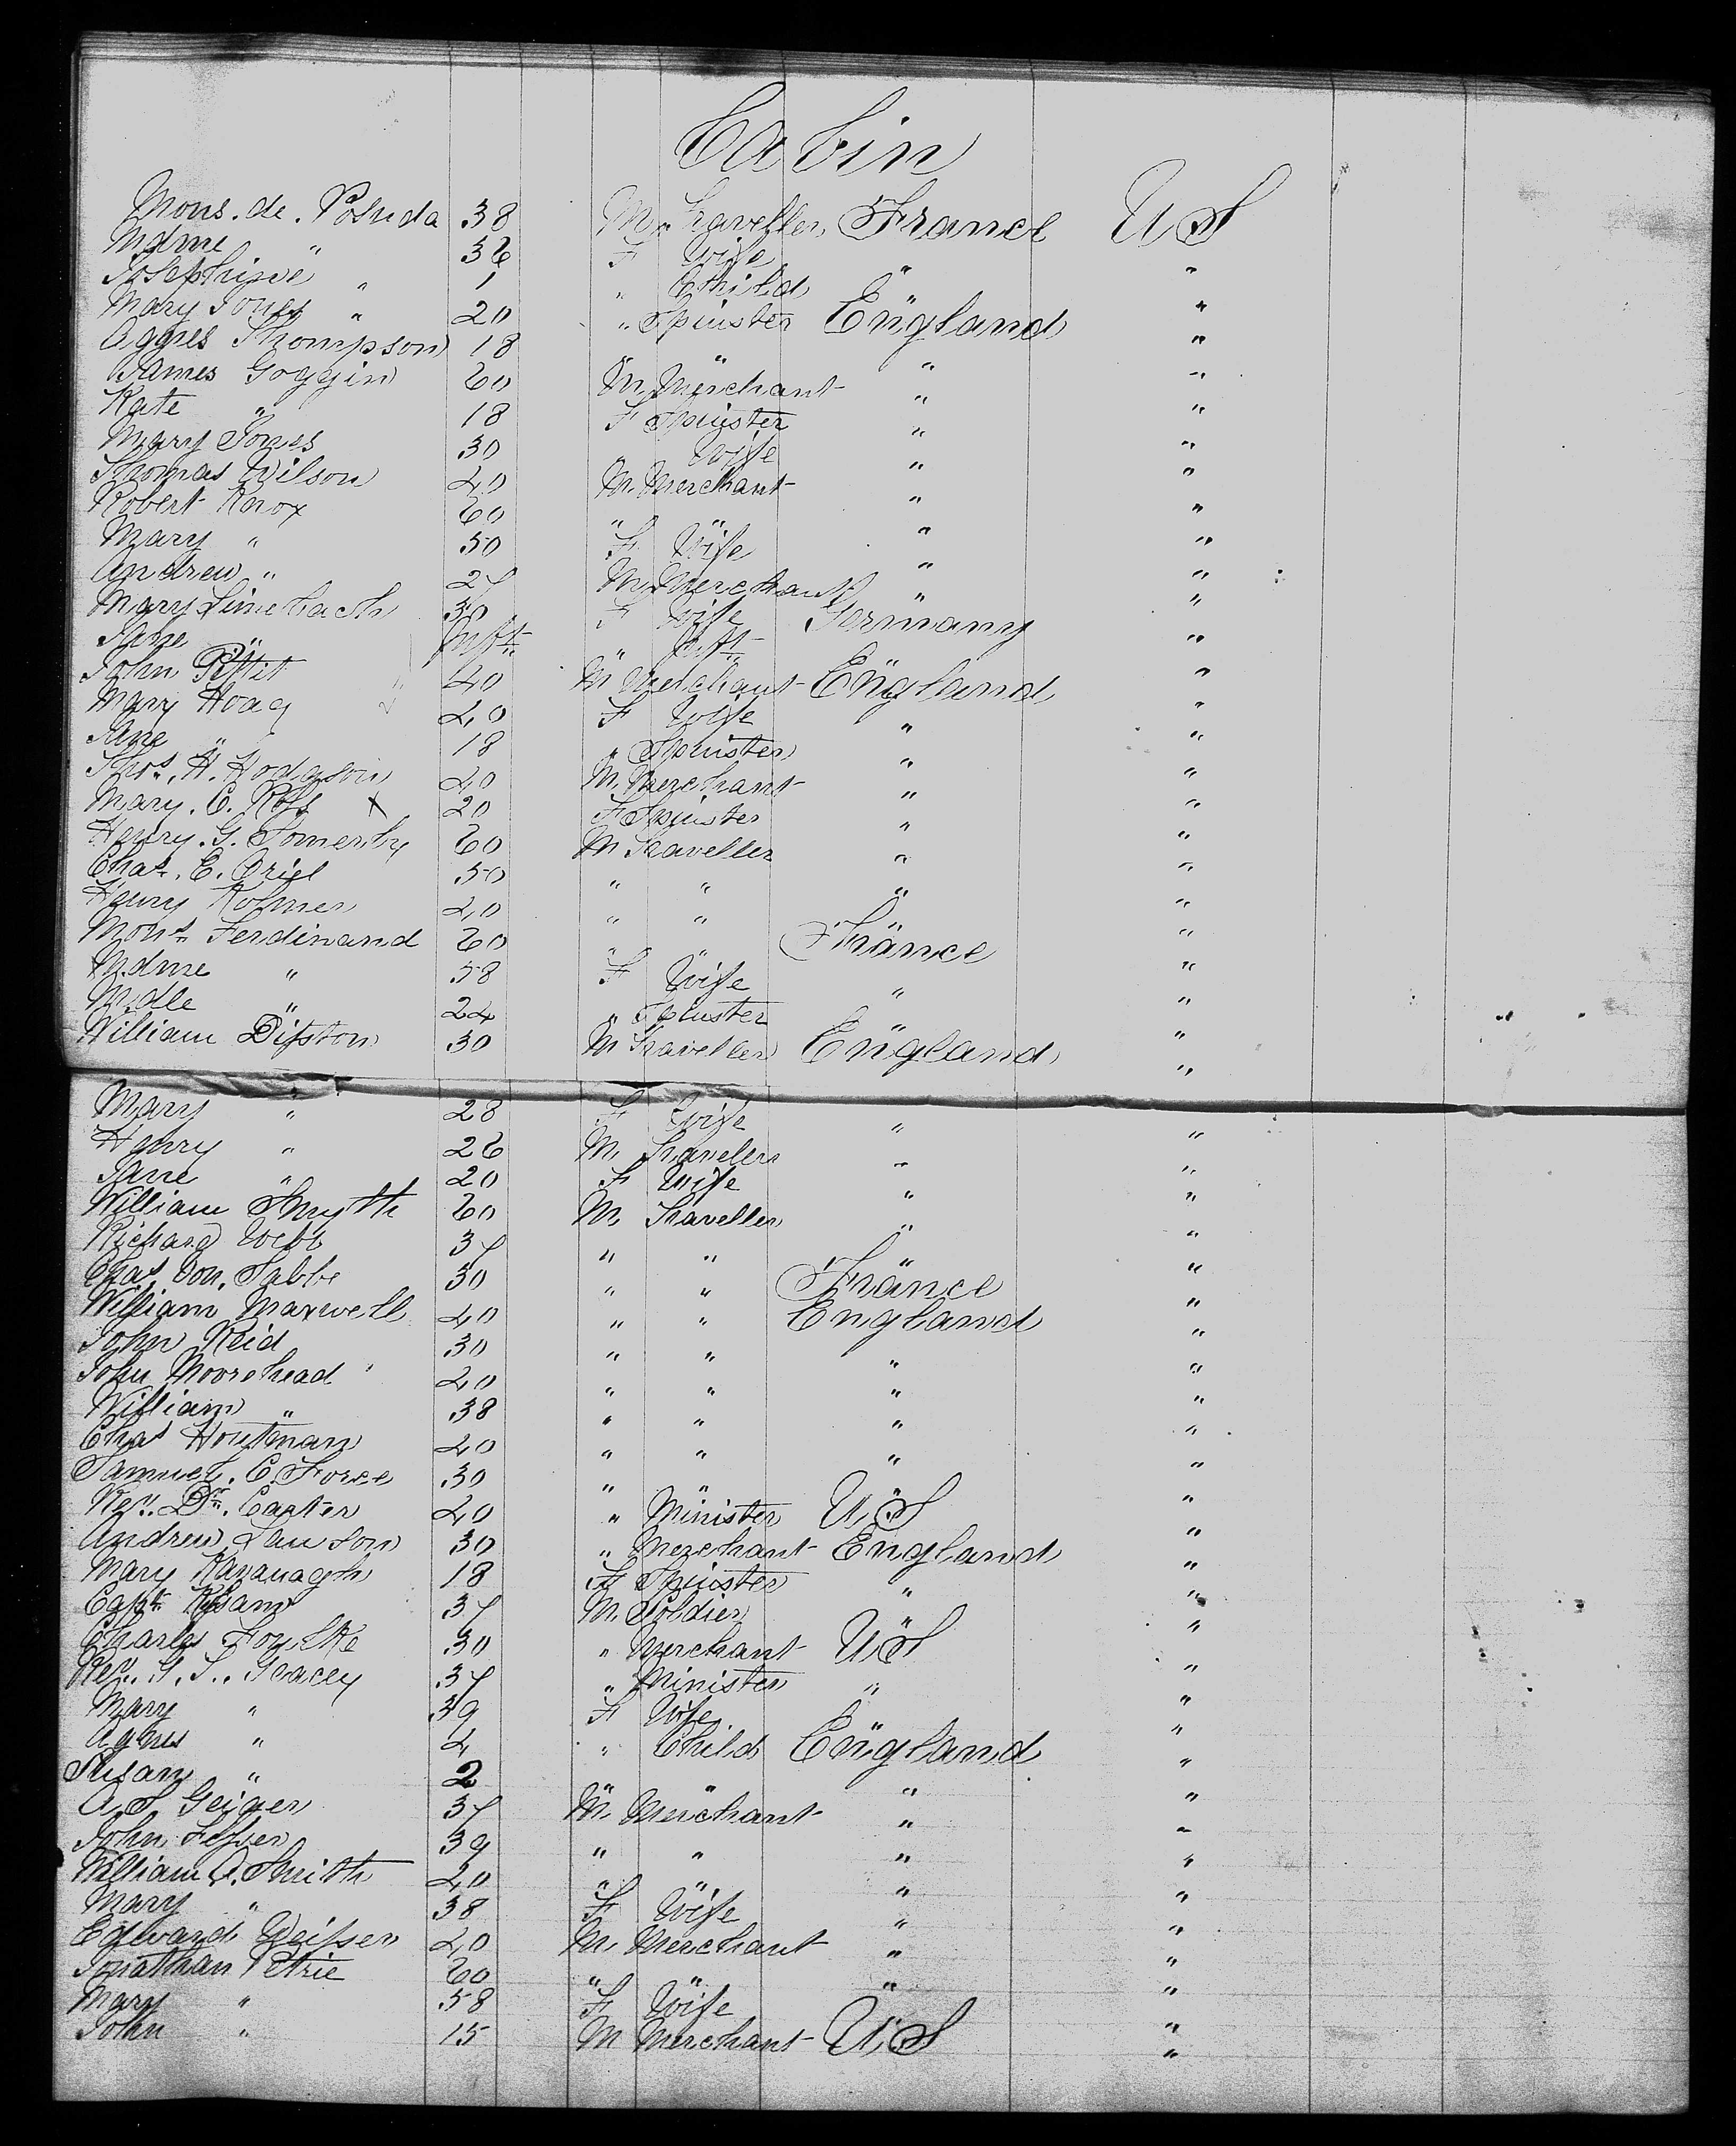 Cabin
Mons. de. Posuda 38 M Traveller France U S
Mdme " 36 F Wife " "
Josephine " 1 " Child " "
Mary Jones " 20 " Spinster England "
Agnes Thompson 18 " " " "
James Goggin 60 M Merchant " "
Kate " 18 F Spinster " "
Mary Jones 30 Wife " "
Thomas Wilson 40 M Merchant " "
Robert Knox 60 " " " "
Mary " 50 F Wife " "
Andrew " 27 M Merchant " "
Mary Limebach 30 F Wife Germany "
Jane " Inft " Inft " "
John Pettit 40 M Merchant England "
Mary Hoag 40 F Wife " "
Jane " 18 " Spinster " "
Thos. H. Hodgson 40 M Merchant " "
Mary. C. Ross X 20 F Spinster " "
Henry. G. Somerby 60 M Traveller " "
Chas. E. Oriel 50 " " " "
Henry Holmer 40 " " " "
Mons. Ferdinand 60 " " France "
Mdme " 58 F Wife " "
Mdlle " 24 " Spinster " "
William Disston 30 M Traveller England "
Mary " 28 F Wife " "
Henry " 26 M Traveller " "
Jane " 20 F Wife " "
William Smyth 60 M Traveller " "
Richard Webb 37 " " " "
Chas. Von. Tabbe 30 " " France "
William Maxwell 40 " " England "
John Reid 30 " " " "
John Moorehead 40 " " " "
William " 38 " " " "
Chas Houtman 40 " " " "
Samuel. C. Force 30 " " " "
Rev. Dr. Carter 40 " Minister U S "
Andrew Lawson 30 " Merchant England "
Mary Kavanagh 18 F Spinster " "
Capt. 37 M Soldier " "
Charles Foulke 30 " Merchant U S "
Rev. G. S. Gracey 37 " Minister " "
Mary " 39 F Wife "
Agnes " 4 " Child England "
Susan " 2 " " " "
A S Geiger 37 M Merchant " "
John Lesser 39 " " " "
William A. Smith 40 " " " "
Mary " 38 F Wife " "
Edward Weisser 40 M Merchant " "
Jonathan Petrie 60 " " " "
Mary " 58 F Wife " "
John " 15 M Merchant U S "